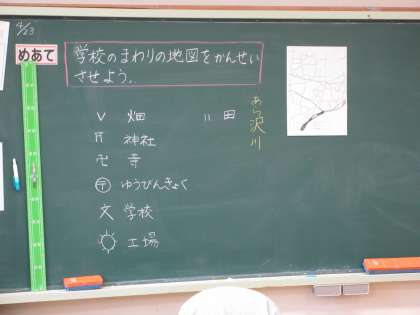 4/23
めあて
学校のまわりの地図をかんせい
させよう。
∨ 畑
〃 田
あら沢川
⛩ 神社
卍 寺
〶 ゆうびんきょく
文 学校
☼ 工場